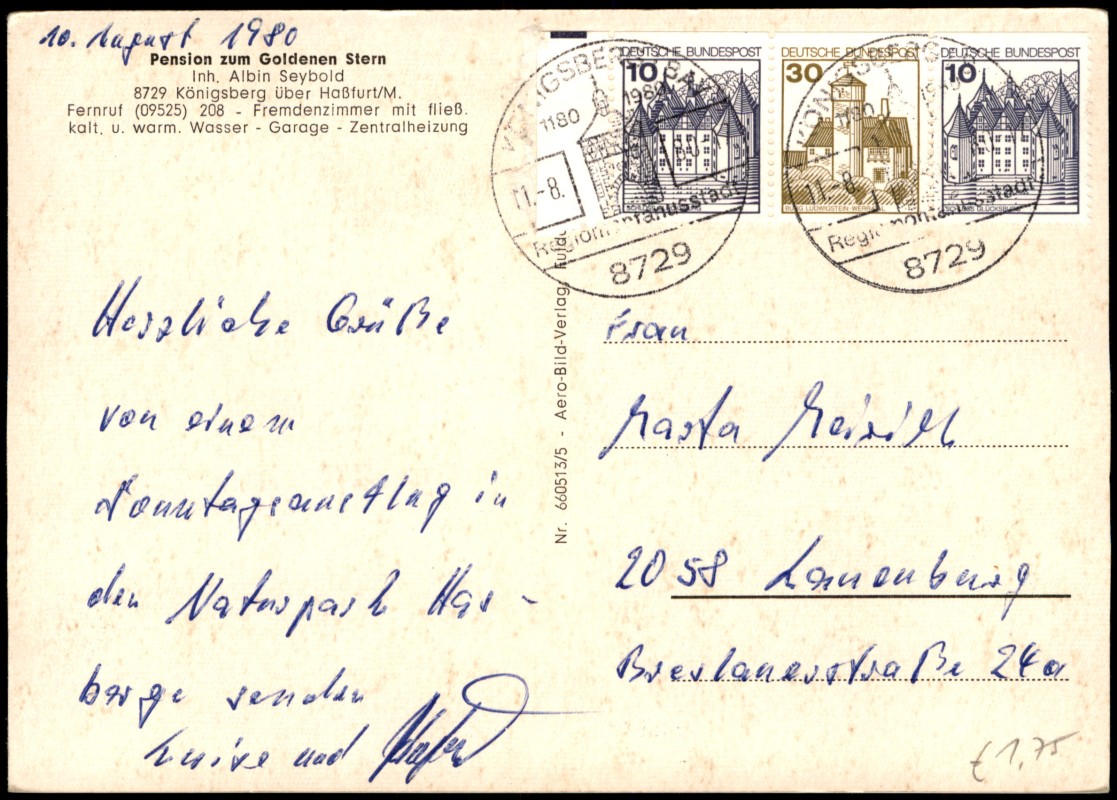 10. August 1980
Pension zum Goldenen Stern
Inh. Albin Seybold
8729 Königsberg über Haßfurt/M.
Fernruf (09525) 208 - Fremdenzimmer mit fließ.
kalt. u. warm. Wasser - Garage - Zentralheizung
DEUTSCHE BUNDESPOST
10
DEUTSCHE BUNDESPOST
30
DEUTSCHE BUNDESPOST
10
BURG LUDWIGSTEIN-WERRATAL
SCHLOSS GLÜCKSBURG
KÖNIGSBERG, BAY
1180
1980
11.-8.
Regiomontanusstadt
8729
KÖNIGSBERG
1180
11.-8.
Regiomontanusstadt
8729
Herzliche Grüße
von einem
Sonntagsausflug in
den Naturpark Has-
berge senden
Luise und
Nr. 660513/5 - Aero-Bild-Verlag, Fulda
Frau
Marta
2058 Lauenburg
Breslauerstraße 24a
€ 1,75